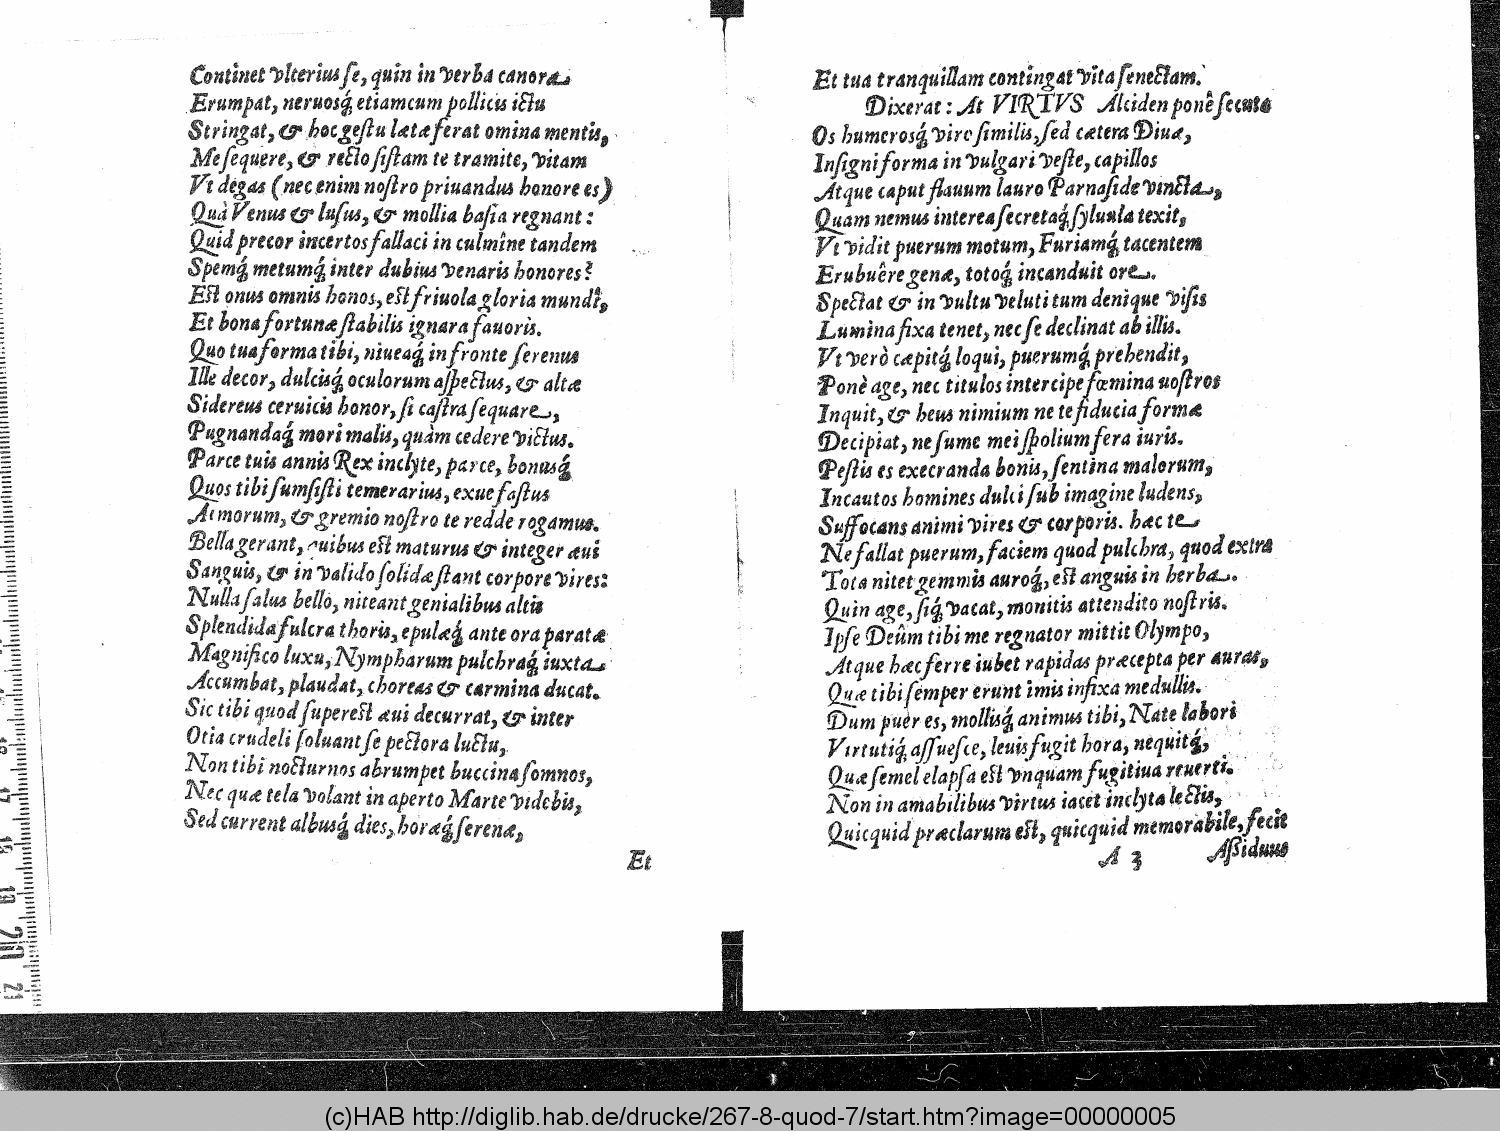 Continet vlterius se, quin in verba canora
Erumpat, neruosq́; etiamcum pollicis ictu
Stringat, & hoc gestu lætæ ferat omina mentis,
Me sequere, & recto sistam te tramite, vitam
Vt degas (nec enim nostro priuandus honore es)
Quà Venus & lusus, & mollia basia regnant:
Quid precor incertos fallaci in culmine tandem
Spemq́; metumq́; inter dubius venaris honores?
Est onus omnis honos, est friuola gloria mundi,
Et bona fortunæ stabilis ignara fauoris.
Quo tua forma tibi, niueaq́; in fronte serenus
Ille decor, dulcisq́; oculorum aspectus, & altæ
Sidereus ceruicis honor, si castra sequare,
Pugnandaq́; mori malis, quàm cedere victus.
Parce tuis annis Rex inclyte, parce, bonusq́;
Quos tibi sumsisti temerarius, exue fastus
Armorum, & gremio nostro te redde rogamus.
Bella gerant, quibus est maturus & integer æui
Sanguis, & in valido solidæ stant corpore vires:
Nulla salus bello, niteant genialibus altis
Splendida fulcra thoris, epulæq́; ante ora paratæ
Magnifico luxu, Nympharum pulchraq́; iuxta
Accumbat, plaudat, choreas & carmina ducat.
Sic tibi quod superest æui decurrat, & inter
Otia crudeli soluant se pectora luctu,
Non tibi nocturnos abrumpet buccina somnos,
Nec quæ tela volant in aperto Marte videbis,
Sed current albusq́; dies, horæq́; serenæ,
Et
Et tua tranquillam contingat vita senectam.
Dixerat: At VIRTVS Alciden ponè secuta
Os humerosq́; viro similis, sed cætera Diua,
Insigni forma in vulgari veste, capillos
Atque caput flauum lauro Parnaside vincta,
Quam nemus interea secretaq́; syluula texit,
Vt vidit puerum motum, Furiamq́; tacentem
Erubuêre genæ, totoq́; incanduit ore.
Spectat & in vultu veluti tum denique visis
Lumina fixa tenet, nec se declinat ab illis.
Vt verò cæpitq́; loqui, puerumq́; prehendit,
Ponè age, nec titulos intercipe fœmina nostros
Inquit, & heus nimium ne te fiducia formæ
Decipiat, ne sume mei spolium fera iuris.
Pestis es execranda bonis, sentina malorum,
Incautos homines dulci sub imagine ludens,
Suffocans animi vires & corporis. hæc te
Ne fallat puerum, faciem quod pulchra, quod extra
Tota nitet gemmis auroq́;, est anguis in herba.
Quin age, siq́; vacat, monitis attendito nostris.
Ipse Deûm tibi me regnator mittit Olympo,
Atque hæc ferre iubet rapidas præcepta per auras,
Quæ tibi semper erunt imis infixa medullis.
Dum puer es, mollisq́; animus tibi, Nate labori
Virtutiq́; assuesce, leuis fugit hora, nequitq́;,
Quæ semel elapsa est vnquam fugitiua reuerti.
Non in amabilibus virtus iacet inclyta lectis,
Quicquid præclarum est, quicquid memorabile, fecit
A 3 Assiduus
(c)HAB http://diglib.hab.de/drucke/267-8-quod-7/start.htm?image=00000005